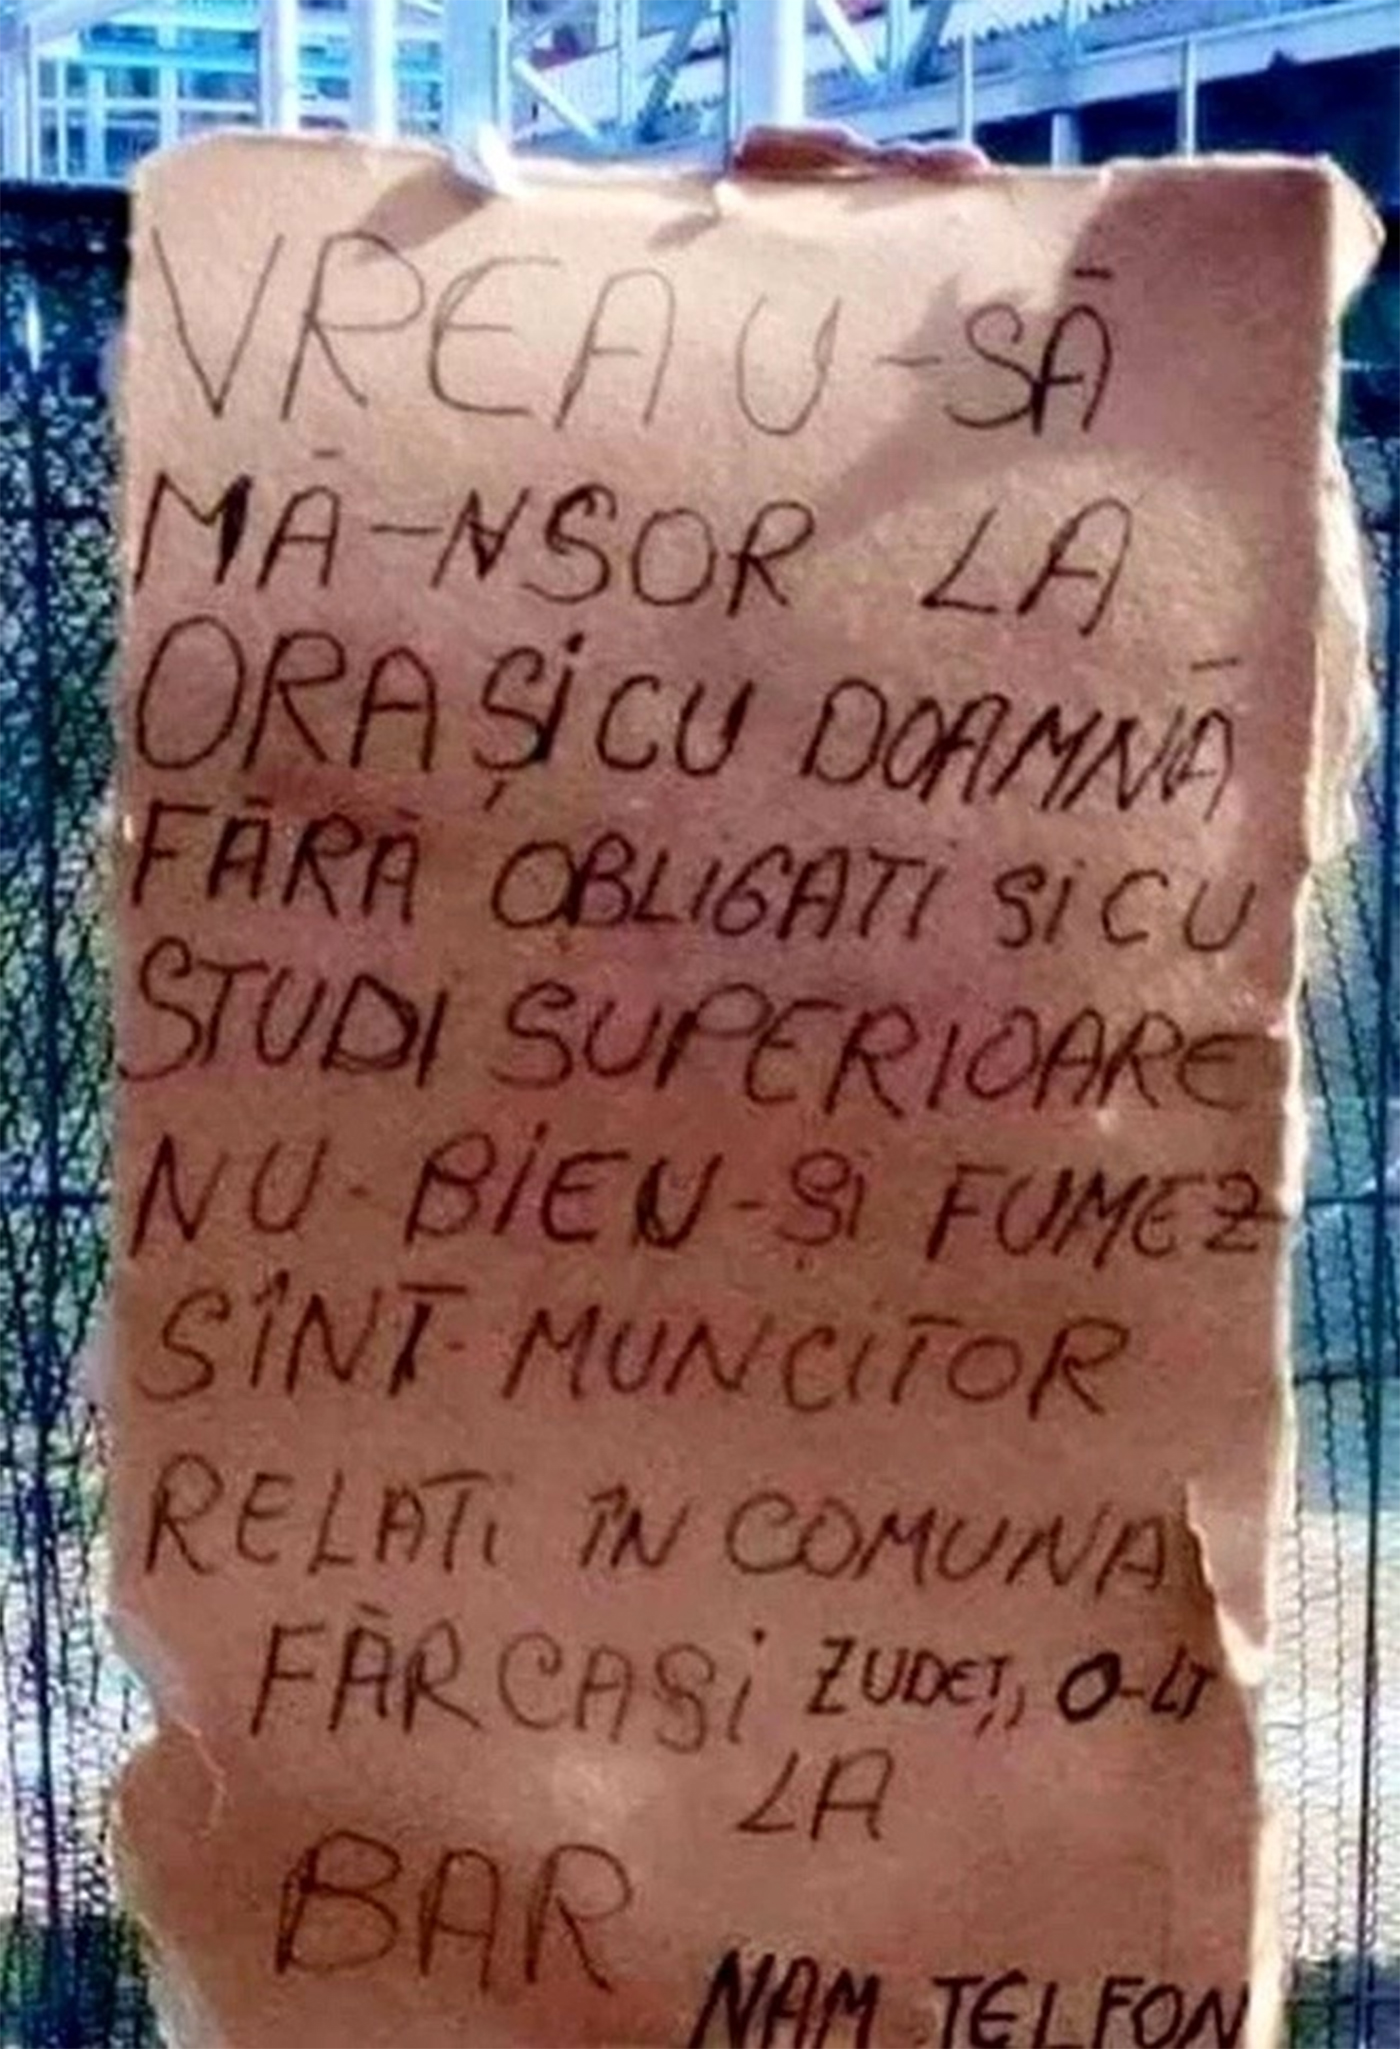 VREAU-SĂ
MĂ-NSOR LA
ORAȘiCU DOAMNĂ
FĂRĂ OBLIGATI SiCU
STUDI SUPERIOARE
NU-BiEU-Și FUMEZ
SÎNT-MUNCiTOR
RELATi ÎN COMUNA
FĂRCAȘi ZUDEȚ, O-LT
LA
BAR
NAM TELFON